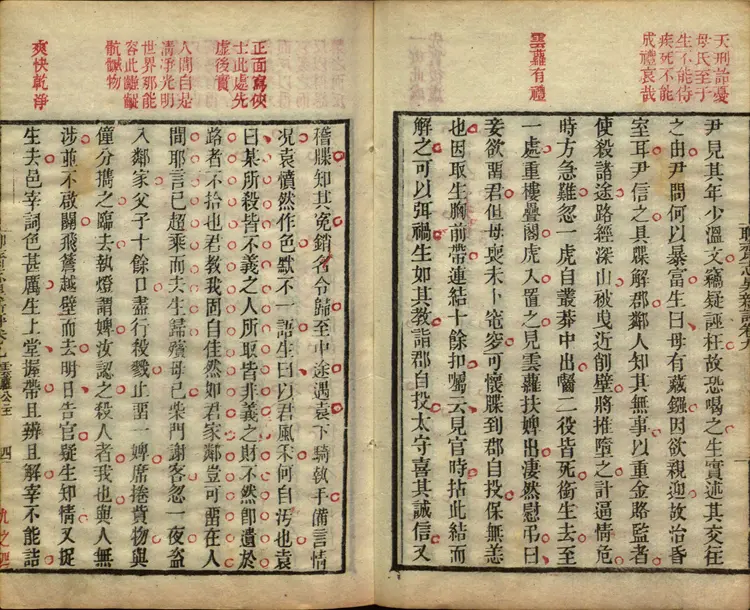 天刑詒憂
母氏至于
生不能侍
疾死不能
成禮哀哉
雲蘿有禮
尹見其年少溫文竊疑誣枉故恐喝之生實述其交往
之由尹問何以暴富生曰母有藏鏹因欲親迎故治昏
室耳尹信之具牒解郡鄰人知其無事以重金賂監者
使殺諸途路經深山被曳近削壁將推墮之計逼情危
時方急難忽一虎自叢莽中出齧二役皆死銜生去至
一處重樓疊閣虎入置之見雲蘿扶婢出淒然慰弔曰
妾欲畱君但母喪未卜窀穸可懷牒到郡自投保無恙
也因取生胸前帶連結十餘扣囑云見官時拈此結而
解之可以弭禍生如其教詣郡自投太守喜其誠信又
正面寫俠
士此處先
虛後實
人間自是
清凈光明
世界那能
容此齷齪
骯髒物
爽快乾淨
稽牒知其冤銷名令歸至中途遇袁下騎執手備言情
况袁憤然作色默不一語生曰以君風采何自汚也袁
曰某所殺皆不義之人所取皆非義之財不然卽遺於
路者不拾也君教我固自佳然如君家鄰豈可畱在人
間耶言已超乘而去生歸殯母已柴門謝客忽一夜盜
入鄰家父子十餘口盡行殺戮止畱一婢席捲貲物與
僮分攜之臨去執燈謂婢汝認之殺人者我也與人無
涉並不啟關飛簷越壁而去明日告官疑生知情又捉
生去邑宰詞色甚厲生上堂握帶且辨且解宰不能詰
雲蘿公主
四